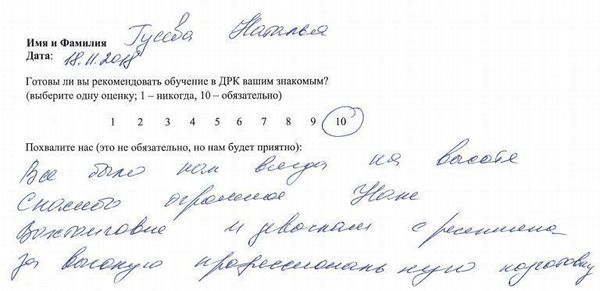 Имя и Фамилия Гусева Наталья
Дата: 18.11.2018
Готовы ли вы рекомендовать обучение в ДРК вашим знакомым?
(выберите одну оценку; 1 – никогда, 10 – обязательно)
1 2 3 4 5 6 7 8 9 10
Похвалите нас (это не обязательно, но нам будет приятно):
Все было как всегда на высоте
Спасибо огромное Нане
Вахтанговне и девочкам с ресепшена
за высокую профессиональную подготовку